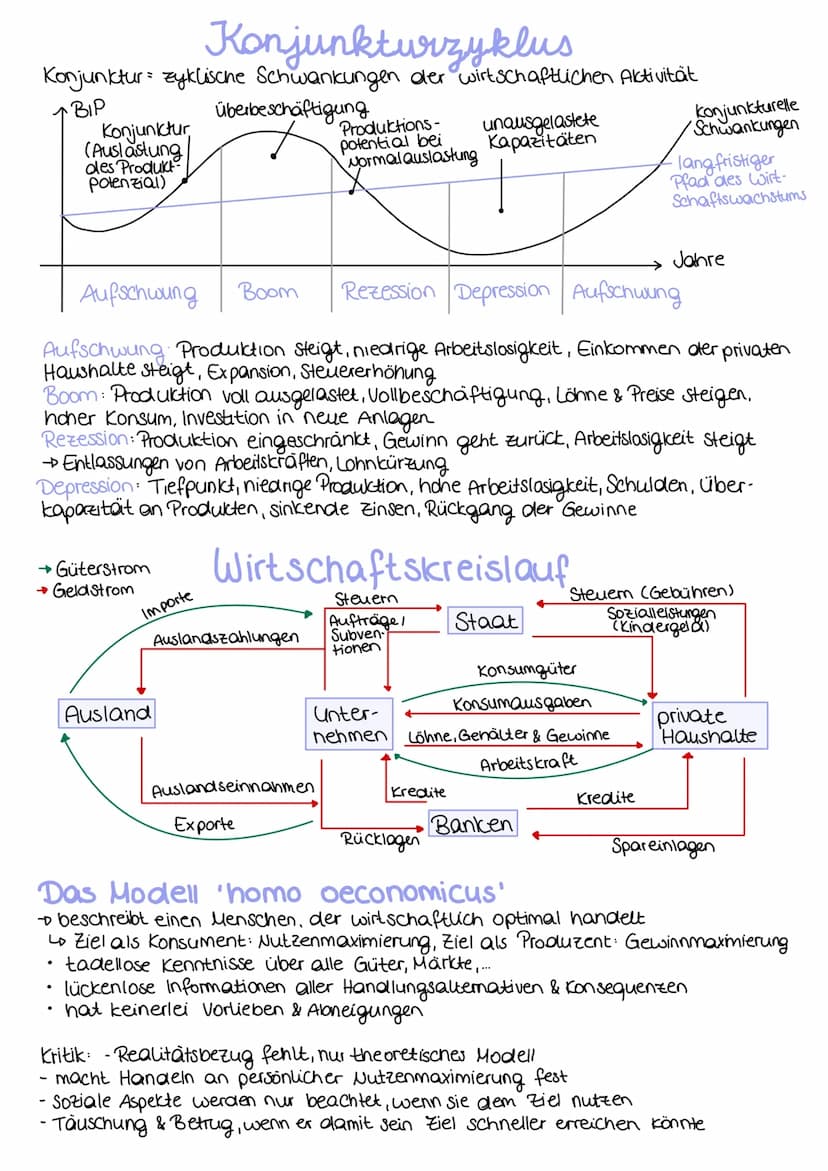 Konjunkturzyklus
Konjunktur = zyklische Schwankungen der wirtschaftlichen Aktivität
BIP
Konjunktur
(Auslastung
des Produkt-
potenzial)
überbeschäftigung
Produktions-
potential bei
Normalauslastung
unausgelastete
Kapazitäten
Konjunkturelle
Schwankungen
langfristiger
Pfad des Wirt-
schaftswachstums
Jahre
Aufschwung Boom Rezession Depression Aufschwung
Aufschwung: Produktion steigt, niedrige Arbeitslosigkeit, Einkommen der privaten
Haushalte steigt, Expansion, Steuererhöhung
Boom: Produktion voll ausgelastet, Vollbeschäftigung, Löhne & Preise steigen,
hoher Konsum, Investition in neue Anlagen
Rezession: Produktion eingeschränkt, Gewinn geht zurück, Arbeitslosigkeit steigt
→ Entlassungen von Arbeitskräften, Lohnkürzung
Depression: Tiefpunkt, niedrige Produktion, hohe Arbeitslosigkeit, Schulden, über-
kapazität an Produkten, sinkende Zinsen, Rückgang der Gewinne
Wirtschaftskreislauf
→ Güterstrom
→ Geldstrom
Importe
Auslandszahlungen
Steuern
Aufträge/
Subven-
tionen
Staat
Steuern (Gebühren)
Sozialleistungen
(Kindergeld)
Konsumgüter
Konsumausgaben
Ausland
Unter-
nehmen
private
Haushalte
Löhne, Gehälter & Gewinne
Arbeitskraft
Auslandseinnahmen
Kredite
Kredite
Exporte
Rücklagen
Banken
Spareinlagen
Das Modell 'homo oeconomicus'
→ beschreibt einen Menschen, der wirtschaftlich optimal handelt
↳ Ziel als Konsument: Nutzenmaximierung, Ziel als Produzent: Gewinnmaximierung
• tadellose Kenntnisse über alle Güter, Märkte,...
• lückenlose Informationen aller Handlungsalternativen & Konsequenzen
• hat keinerlei Vorlieben & Abneigungen
Kritik: - Realitätsbezug fehlt, nur theoretisches Modell
- macht Handeln an persönlicher Nutzenmaximierung fest
- Soziale Aspekte werden nur beachtet, wenn sie dem Ziel nutzen
- Täuschung & Betrug, wenn er damit sein Ziel schneller erreichen könnte